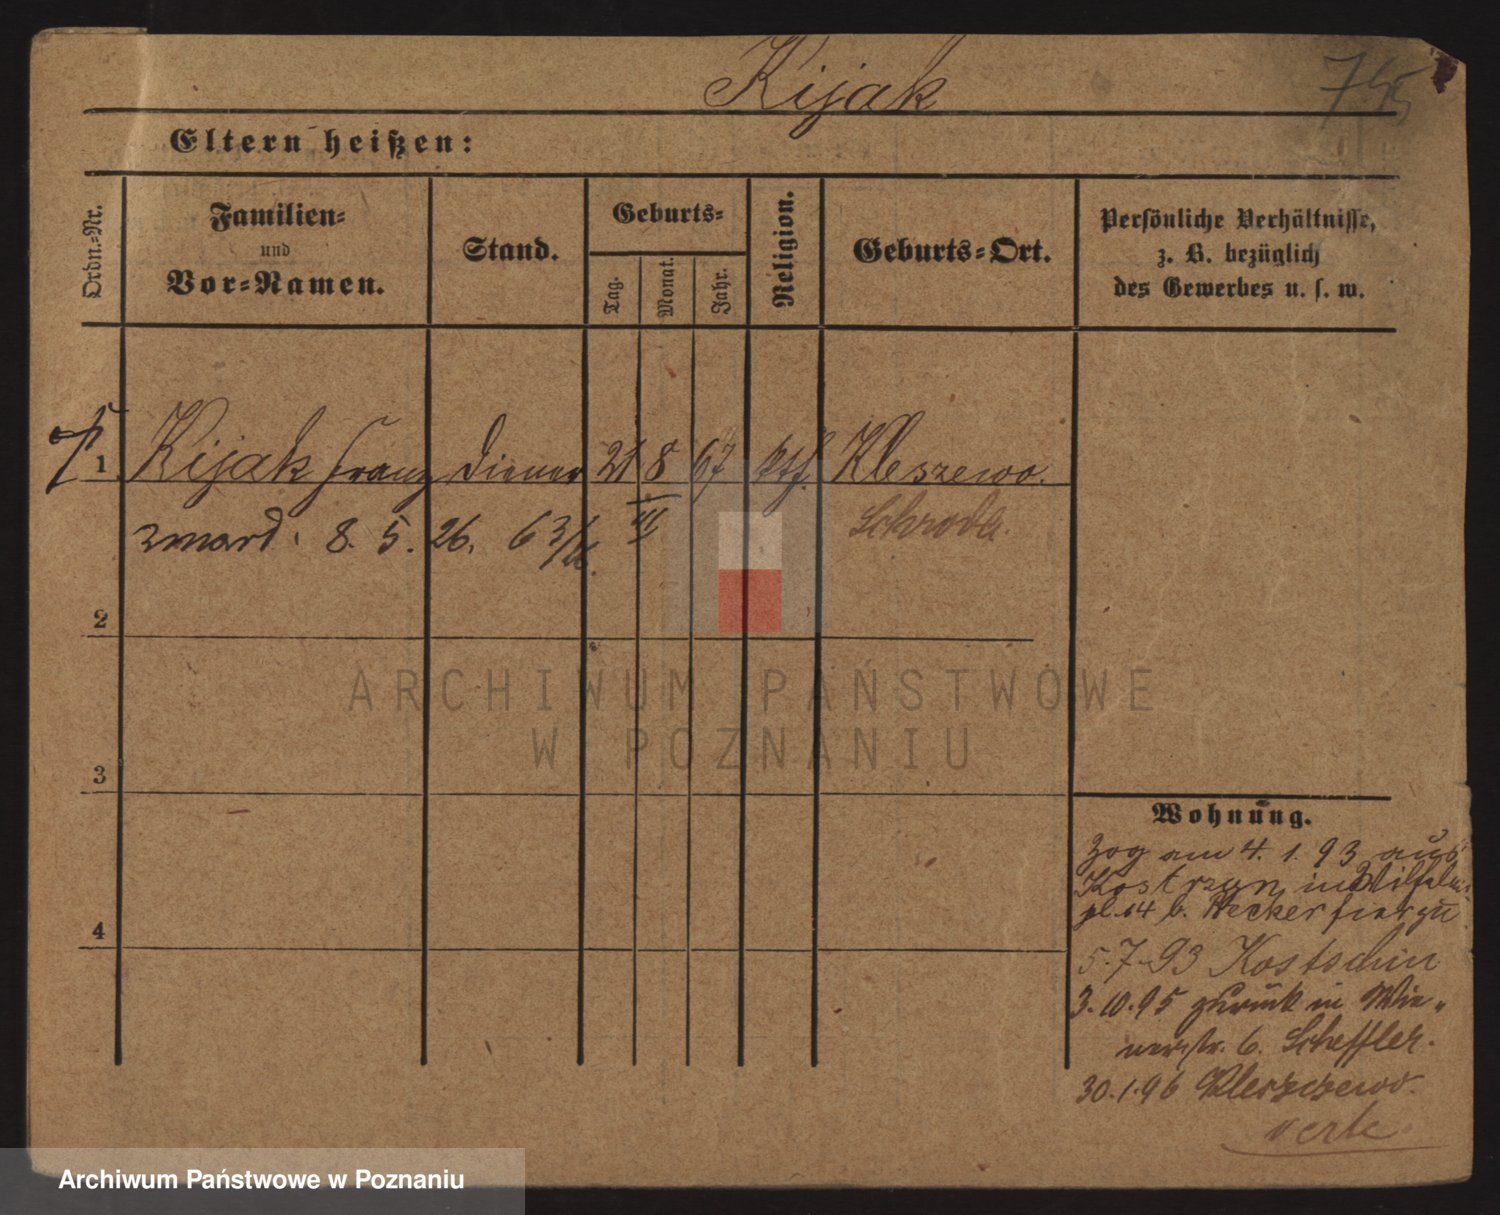 Kijak
745
Eltern heißen:
Ordn.-Nr.
Familien-
und
Vor-Namen.
Stand.
Geburts-
Tag.
Monat.
Jahr.
Religion.
Geburts-Ort.
Persönliche Verhältnisse,
z. B. bezüglich
des Gewerbes u. s. w.
1 Kijak Franz Diener 21 8 67 kth. Kleszewo.
zmarł. 8. 5. 26. III Schroda.
2
3
4
Wohnung.
Zog am 4. 1. 93 aus
Kostrzyn in Wilhelms
pl. 14 b. Hecker hierzu
5.7.93 Kostschin
3.10.95 zurück in Wie-
nerstr. 6. Scheffler.
30.1.96 Kleszczewo.
ARCHIWUM PAŃSTWOWE
W POZNANIU
Archiwum Państwowe w Poznaniu